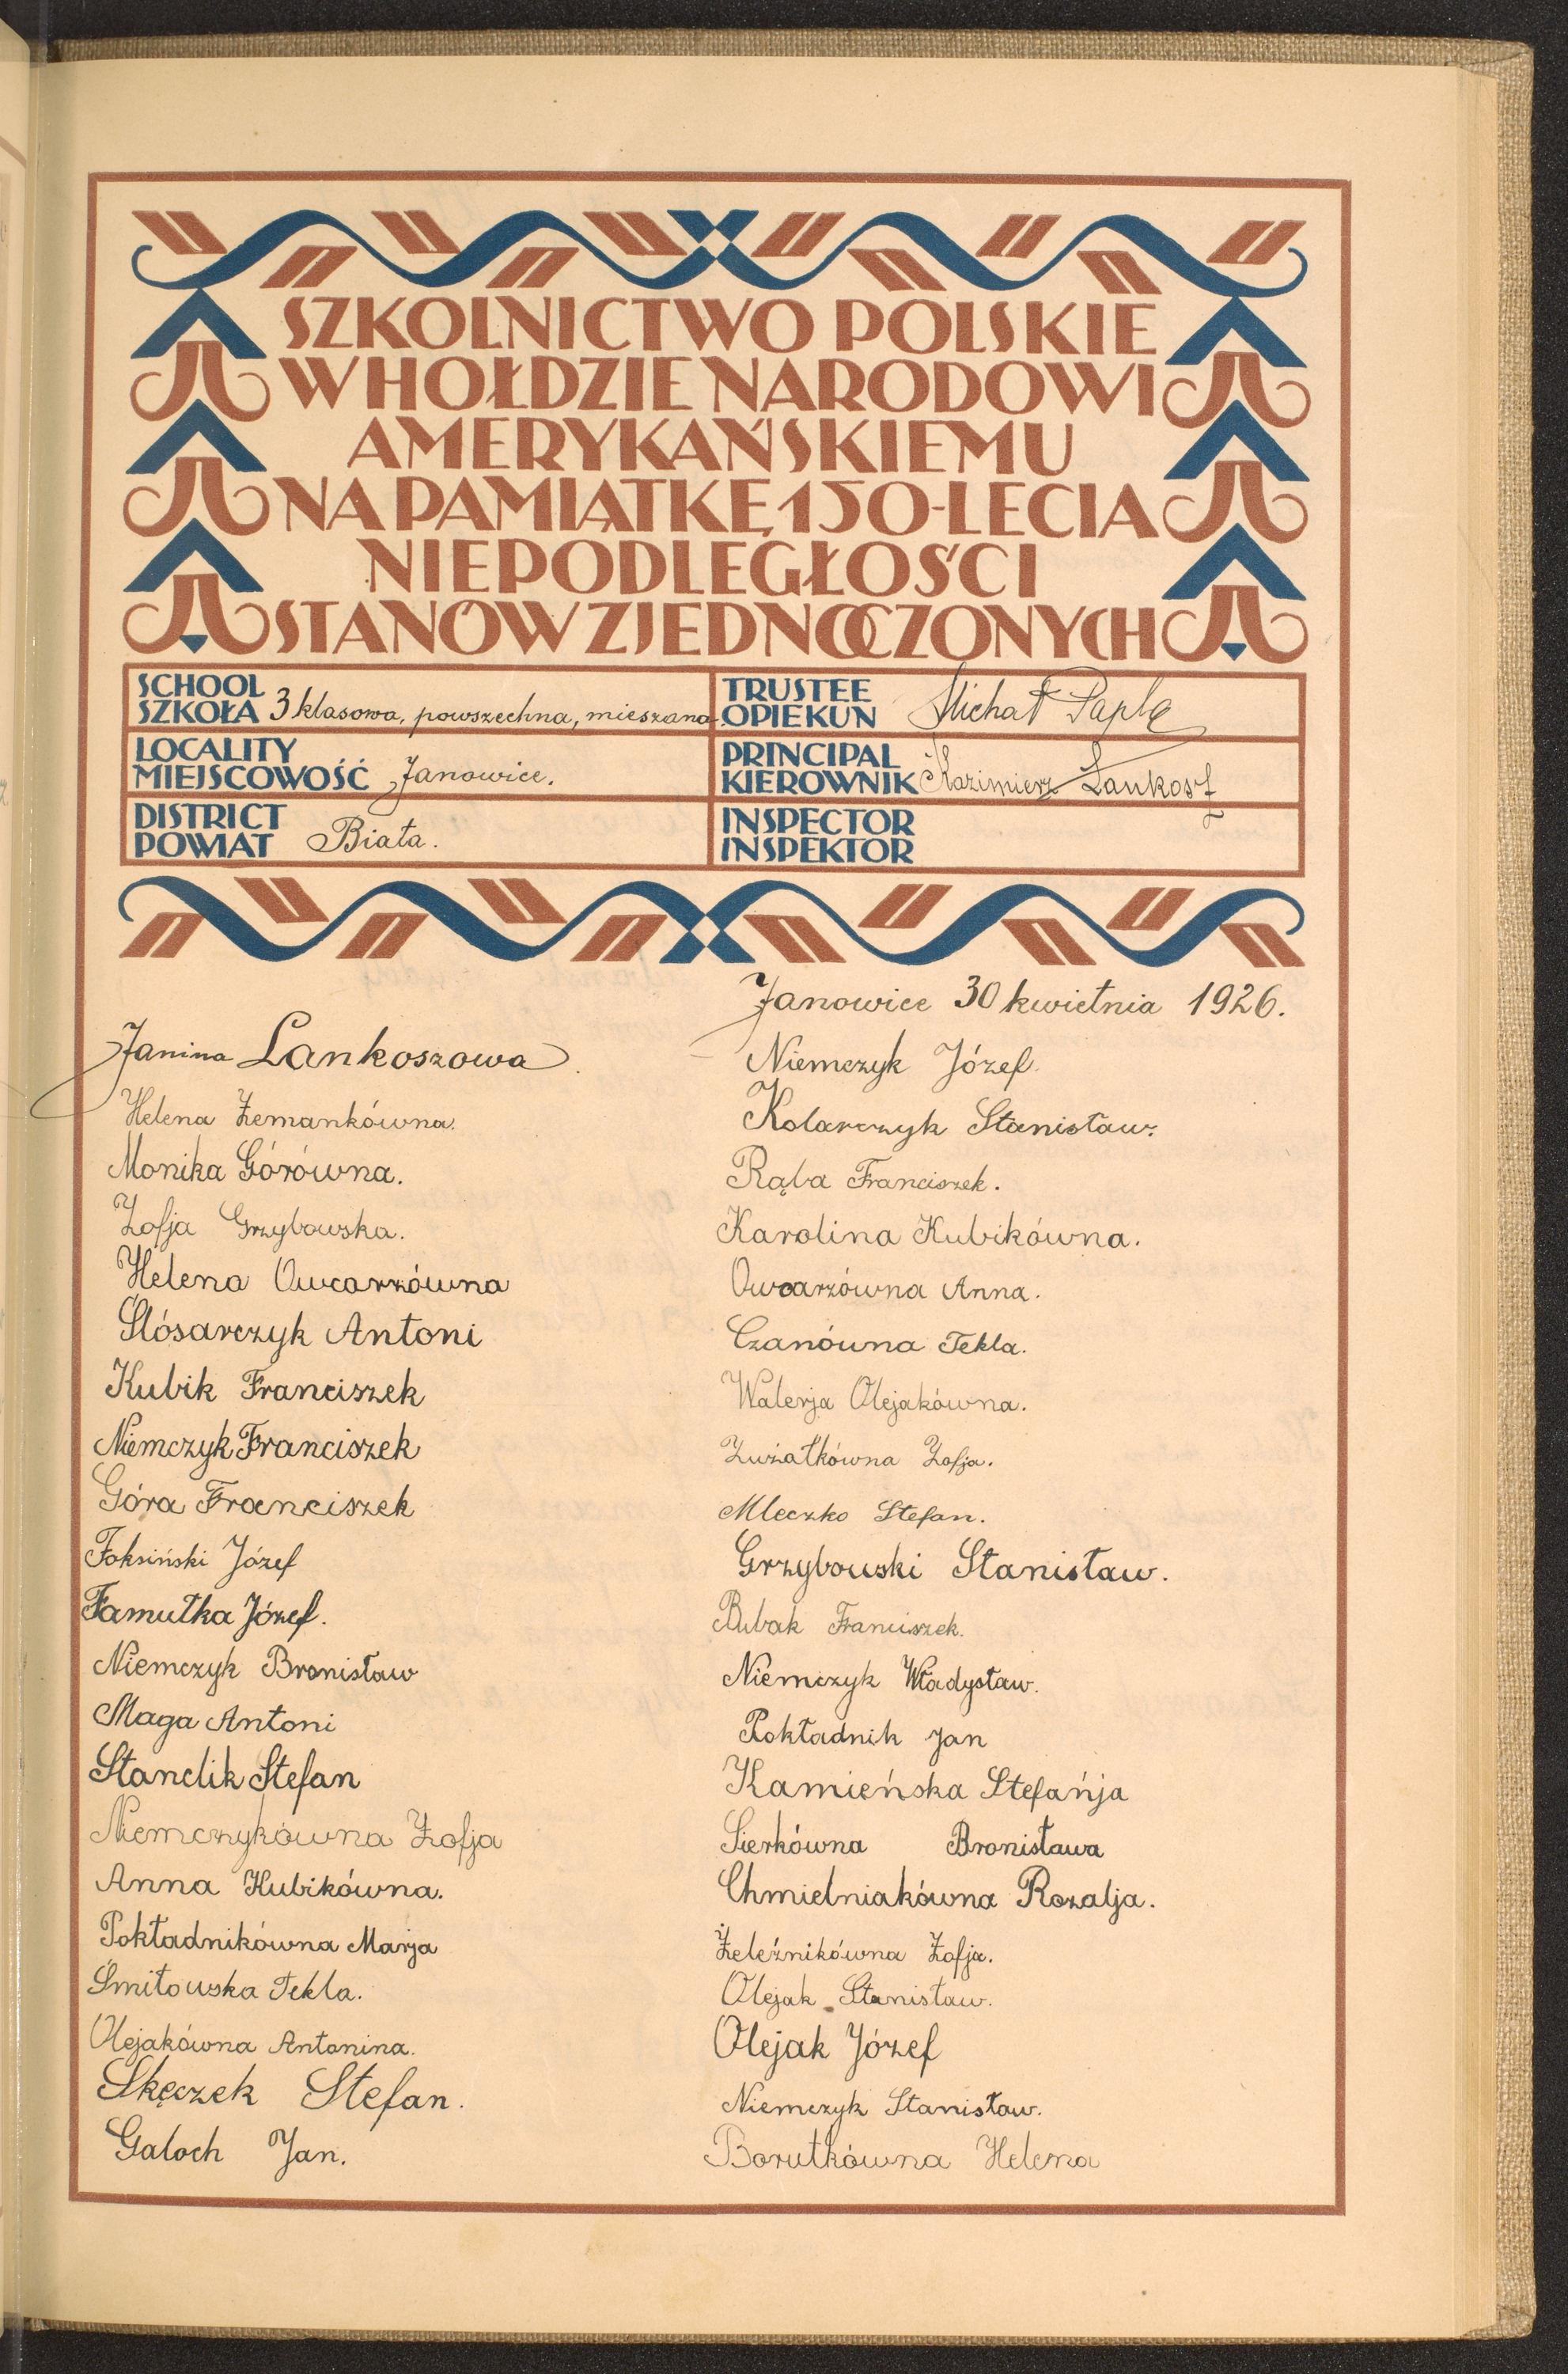 SZKOLNICTWO POLSKIE
W HOŁDZIE NARODOWI
AMERYKAŃSKIEMU
NA PAMIĄTKĘ 150-LECIA
NIEPODLEGŁOŚCI
STANÓW ZJEDNOCZONYCH
SCHOOL
SZKOŁA 3 klasowa, powszechna, mieszana.
TRUSTEE
OPIEKUN Michał Papla
LOCALITY
MIEJSCOWOŚĆ Janowice.
PRINCIPAL
KIEROWNIK Kazimierz Lankosz
DISTRICT
POWIAT Biała.
INSPECTOR
INSPEKTOR
Janowice 30 kwietnia 1926.
Janina Lankoszowa.
Helena Zemankówna.
Monika Górówna.
Zofja Grzybowska.
Helena Owcarzówna
Ślósarczyk Antoni
Kubik Franciszek
Niemczyk Franciszek
Góra Franciszek
Foksiński Józef
Famułka Józef.
Niemczyk Bronisław
Maga Antoni
Stanclik Stefan
Niemczykówna Zofja
Anna Kubikówna.
Pokładnikówna Marja
Śmiłowska Tekla.
Olejakówna Antonina.
Skęczek Stefan.
Galoch Jan.
Niemczyk Józef.
Kolarczyk Stanisław.
Rąba Franciszek.
Karolina Kubikówna.
Owcarzówna Anna.
Czanówna Tekla.
Walerja Olejakówna.
Zużałkówna Zofja.
Mleczko Stefan.
Grzybowski Stanisław.
Bubak Franciszek.
Niemczyk Władysław.
Pokładnik Jan
Kamieńska Stefańja
Sierkówna Bronisława
Chmielniakówna Rozalja.
Żeleźnikówna Zofja.
Olejak Stanisław.
Olejak Józef
Niemczyk Stanisław.
Borutkówna Helena